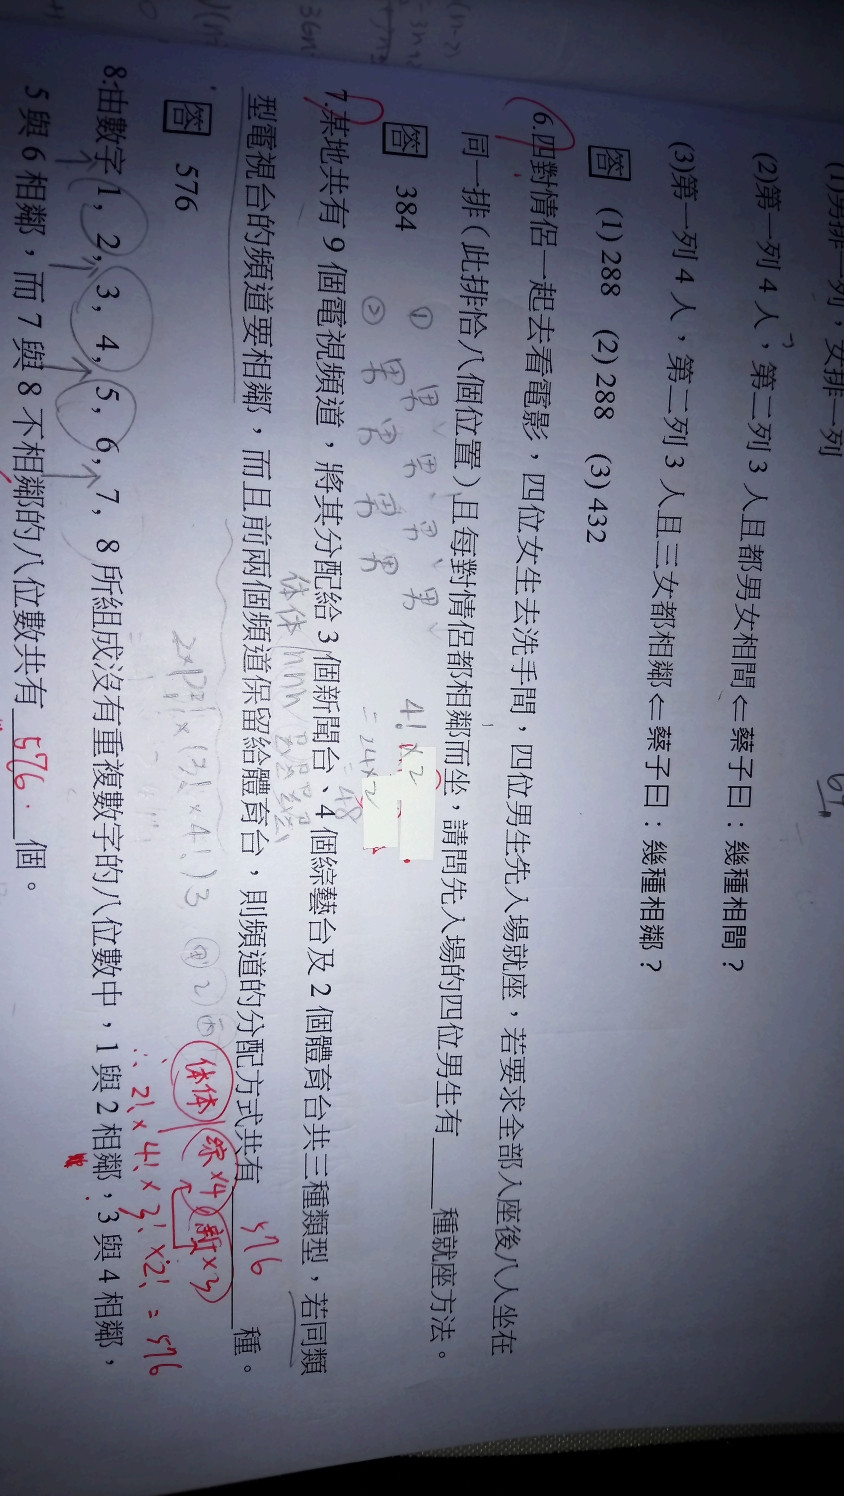 (1)男排一列，女排一列
(2)第一列 4 人，第二列 3 人且都男女相間⇐蔡子曰：幾種相間？
(3)第一列 4 人，第二列 3 人且三女都相鄰⇐蔡子曰：幾種相鄰？
答 (1) 288 (2) 288 (3) 432
6.四對情侶一起去看電影，四位女生去洗手間，四位男生先入場就座，若要求全部入座後八人坐在
同一排（此排恰八個位置）且每對情侶都相鄰而坐，請問先入場的四位男生有____種就座方法。
答 384
① 男 男 男 男
4! ×2
② 男 男 男 男
= 24×2
= 48
7.某地共有 9 個電視頻道，將其分配給 3 個新聞台、4 個綜藝台及 2 個體育台共三種類型，若同類
型電視台的頻道要相鄰，而且前兩個頻道保留給體育台，則頻道的分配方式共有 576 種。
答 576
体体 綜×4 新×3
∴ 2! × 4! × 3! × 2! = 576
8.由數字 1，2，3，4，5，6，7，8 所組成沒有重複數字的八位數中，1 與 2 相鄰，3 與 4 相鄰，
5 與 6 相鄰，而 7 與 8 不相鄰的八位數共有 576. 個。